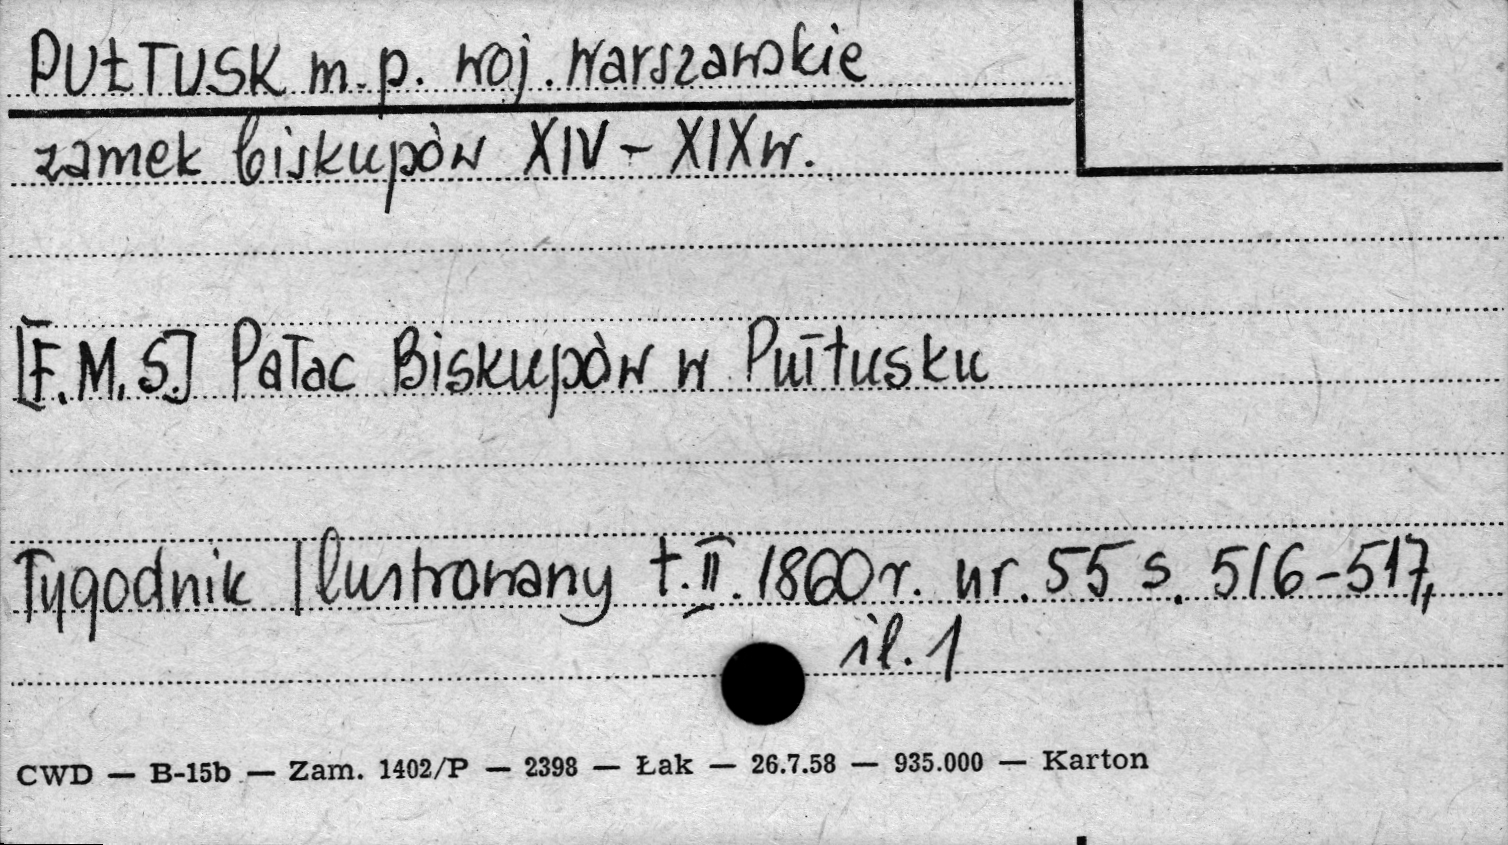 PUŁTUSK m.p. woj. warszawskie
zamek biskupów XIV - XIX w.
[F.M.S.] Pałac Biskupów w Pułtusku
Tygodnik Ilustrowany t. II. 1860 r. nr. 55 s. 516-517,
il. 1
CWD — B-15b — Zam. 1402/P — 2398 — Łak — 26.7.58 — 935.000 — Karton